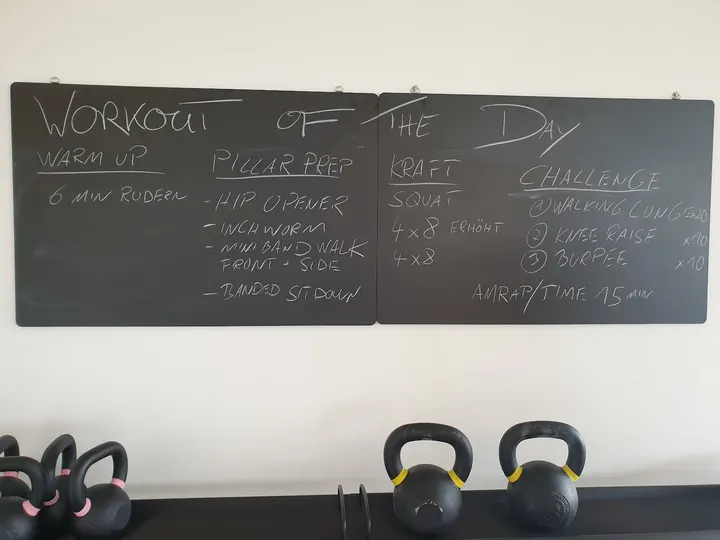 WORKOUT OF THE DAY
WARM UP
6 MIN RUDERN
PILLAR PREP
- HIP OPENER
- INCHWORM
- MINIBAND WALK
FRONT + SIDE
- BANDED SITDOWN
KRAFT
SQUAT
4x8 ERHÖHT
4x8
CHALLENGE
① WALKING LUNGE
② KNEE RAISE x10
③ BURPEE x10
AMRAP/TIME 15 MIN